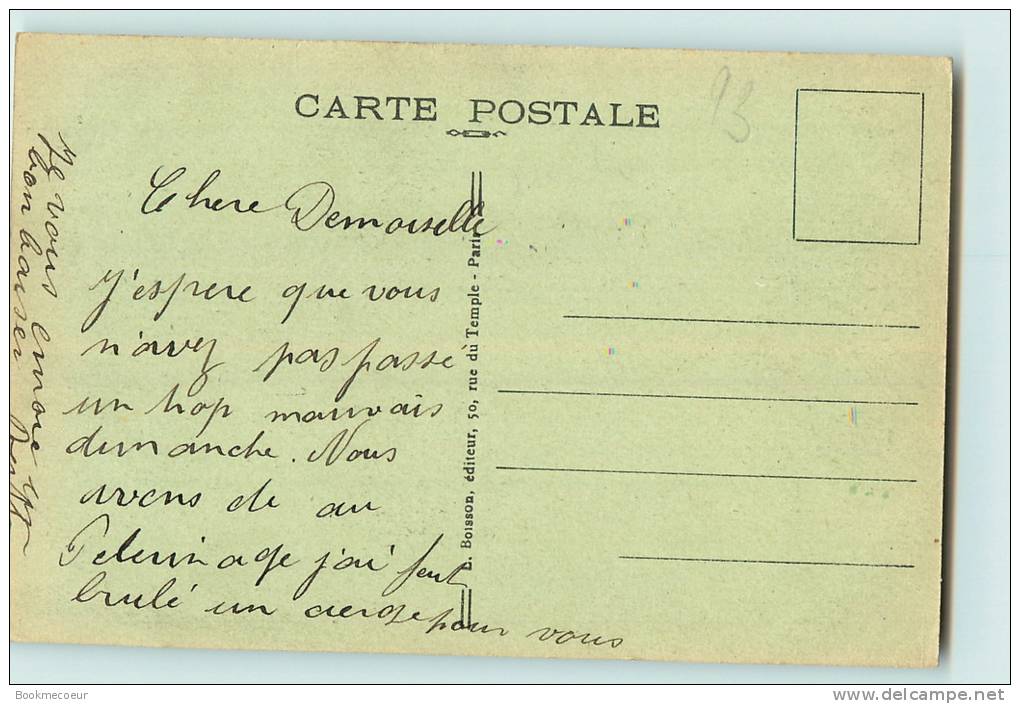 CARTE POSTALE
93
Chere Demoiselle
J'espere que vous
n'avez pas passé
un trop mauvais
dimanche. Nous
avons de au
Pelerinage j'ai fait
brulé un cierge pour vous
Je vous envoie un
bon baiser
L. Boisson, éditeur, 50, rue du Temple - Paris
Bookmecoeur
www.delcampe.net